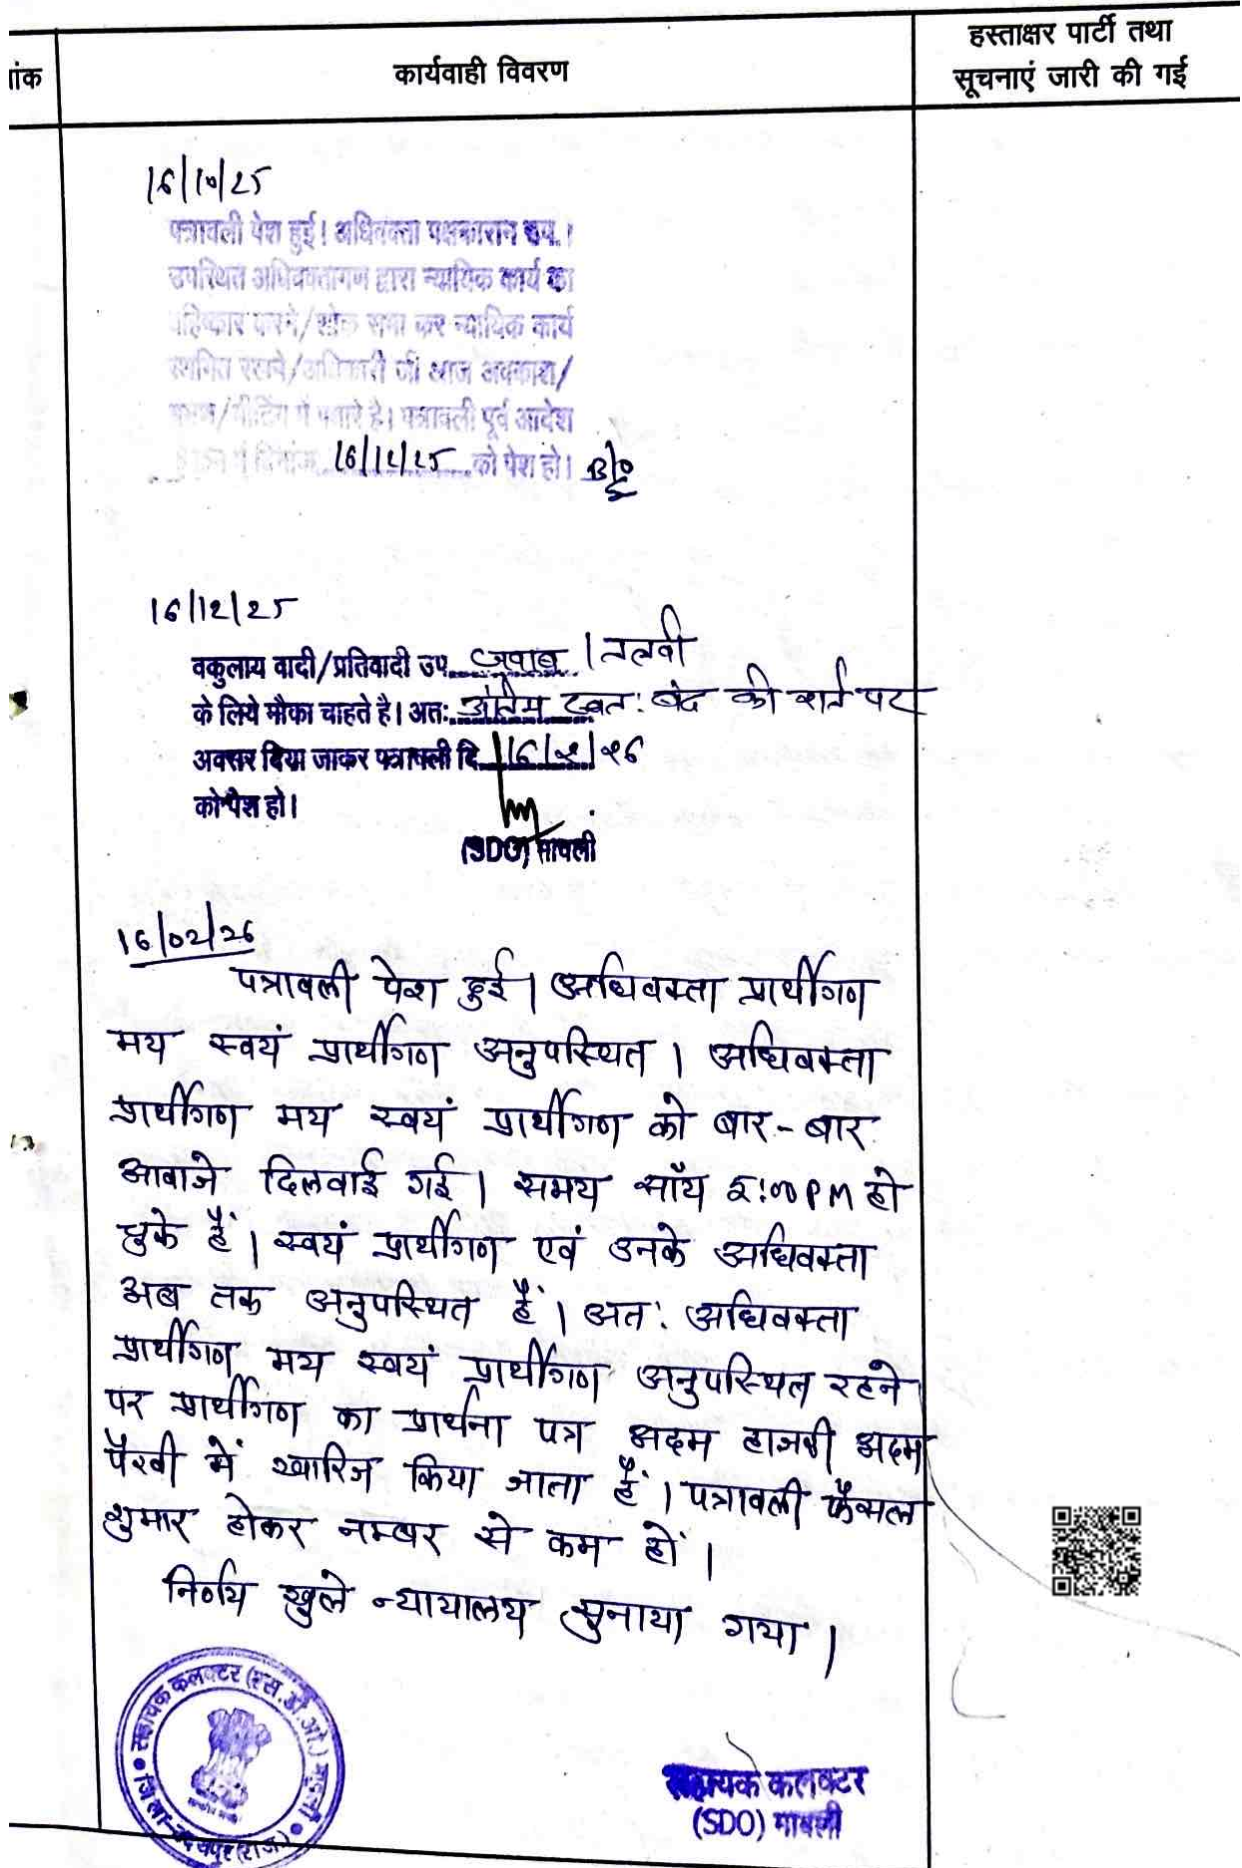 ांक
कार्यवाही विवरण
हस्ताक्षर पार्टी तथा
सूचनाएं जारी की गई
16/10/25
पत्रावली पेश हुई। अधिवक्ता पक्षकारान उप.।
उपस्थित अधिवक्तागण द्वारा न्यायिक कार्य का
बहिष्कार करने/शोक सभा कर न्यायिक कार्य
स्थगित रखने/अधिकारी जी आज अवकाश/
भ्रमण/मीटिंग में पधारे है। पत्रावली पूर्व आदेश
में दिनांक 16/12/25 को पेश हो।
16/12/25
वकुलाय वादी/प्रतिवादी उप. जवाब / तलबी
के लिये मौका चाहते है। अतः अंतिम स्वत: बंद की शर्त पर
अवसर दिया जाकर पत्रावली दि. 16/2/26
को पेश हो।
(SDO) मावली
16/02/26
पत्रावली पेश हुई। अधिवक्ता प्रार्थीगण
मय स्वयं प्रार्थीगण अनुपस्थित। अधिवक्ता
प्रार्थीगण मय स्वयं प्रार्थीगण को बार-बार
आवाजे दिलवाई गई। समय सॉय 5:00 PM हो
चुके हैं। स्वयं प्रार्थीगण एवं उनके अधिवक्ता
अब तक अनुपस्थित हैं। अत: अधिवक्ता
प्रार्थीगण मय स्वयं प्रार्थीगण अनुपस्थित रहने
पर प्रार्थीगण का प्रार्थना पत्र अदम हाजरी अदम
पैरवी में खारिज किया जाता हैं। पत्रावली फैसल
शुमार होकर नम्बर से कम हो।
निर्णय खुले न्यायालय सुनाया गया।
सहायक कलक्टर (एस.डी.ओ.) मावली
जिला-उदयपुर (राज.)
सहायक कलक्टर
(SDO) मावली